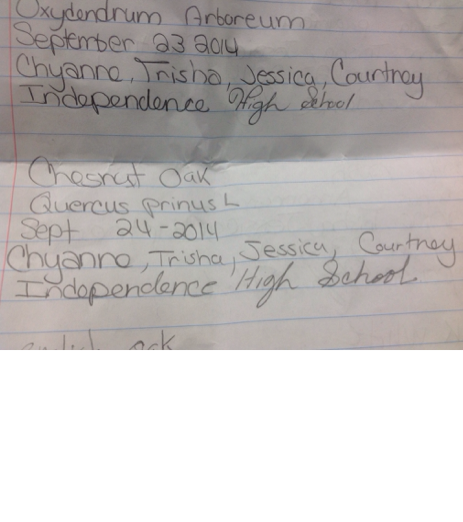 Oxydendrum Arboreum
September 23 2014
Chyanne, Trisha, Jessica, Courtney
Independence High School
Chesnut Oak
Quercus prinus L
Sept 24-2014
Chyanne, Trisha, Jessica, Courtney
Independence High School
oak